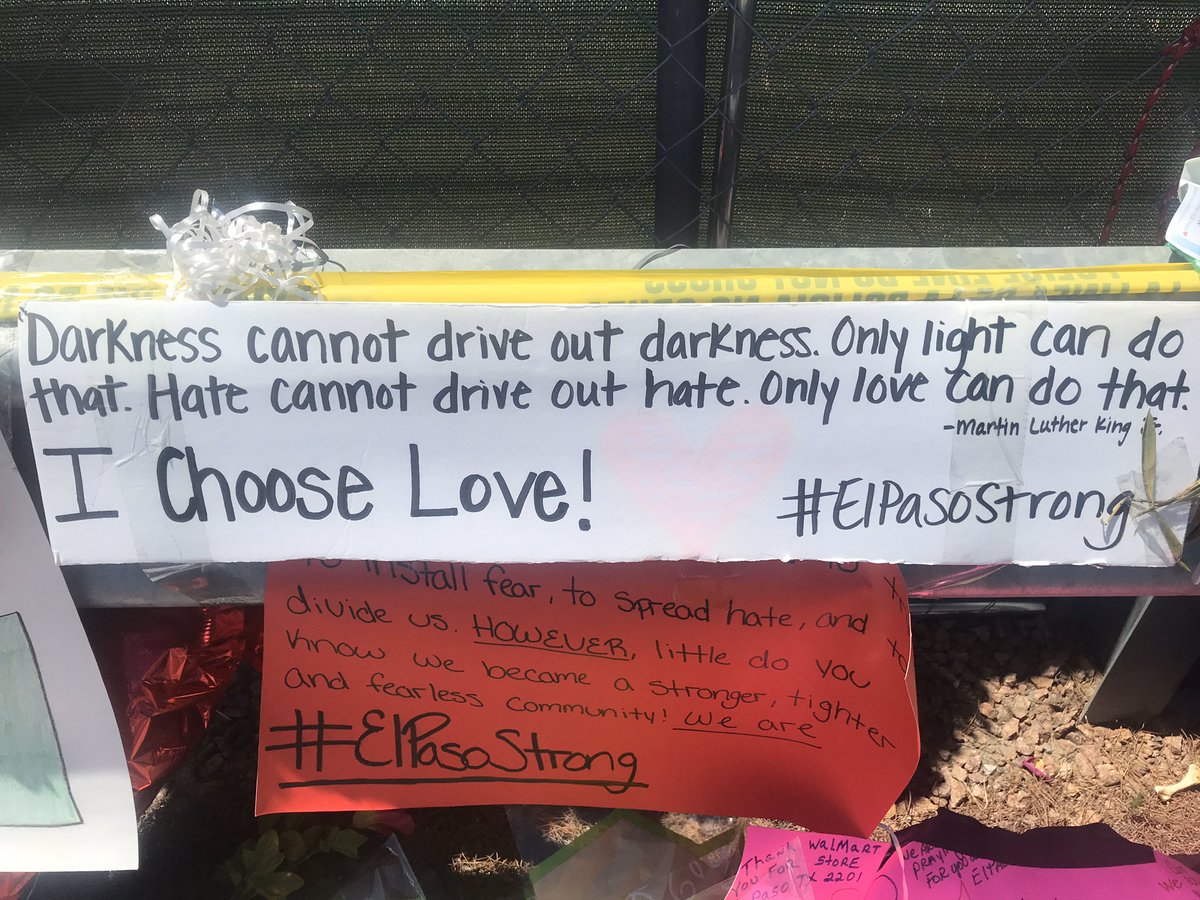 Darkness cannot drive out darkness. Only light can do
that. Hate cannot drive out hate. Only love can do that.
-Martin Luther King Jr.
I Choose Love!
#ElPasoStrong
install fear, to spread hate, and
divide us. HOWEVER, little do you
know we became a stronger, tighter
and fearless community! We are
#ElPasoStrong
Thank
you for
WalMart
Store
Paso TX 2201
Praying
for you